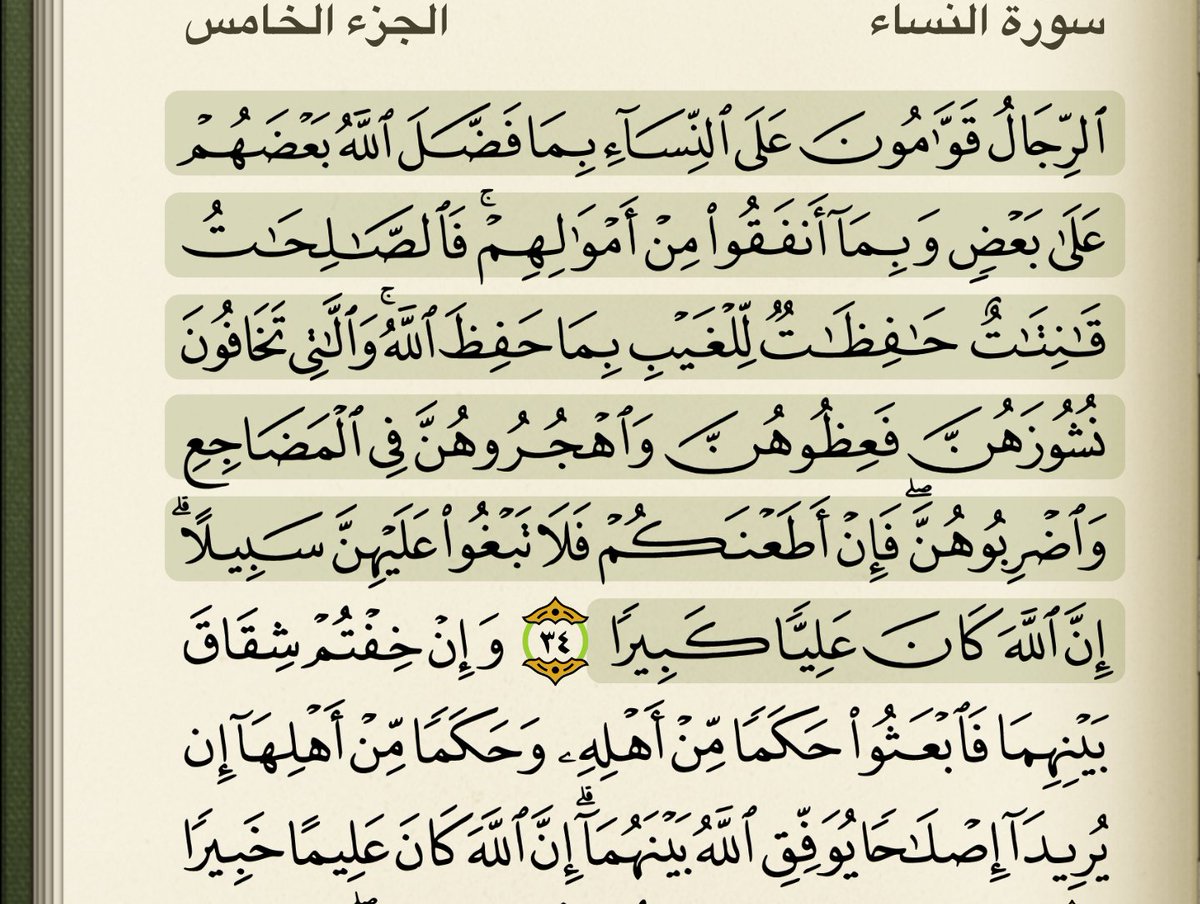 سورة النساء الجزء الخامس
ٱلرِّجَالُ قَوَّٰمُونَ عَلَى ٱلنِّسَآءِ بِمَا فَضَّلَ ٱللَّهُ بَعۡضَهُمۡ
عَلَىٰ بَعۡضٖ وَبِمَآ أَنفَقُواْ مِنۡ أَمۡوَٰلِهِمۡۚ فَٱلصَّٰلِحَٰتُ
قَٰنِتَٰتٌ حَٰفِظَٰتٞ لِّلۡغَيۡبِ بِمَا حَفِظَ ٱللَّهُۚ وَٱلَّٰتِي تَخَافُونَ
نُشُوزَهُنَّ فَعِظُوهُنَّ وَٱهۡجُرُوهُنَّ فِي ٱلۡمَضَاجِعِ
وَٱضۡرِبُوهُنَّۖ فَإِنۡ أَطَعۡنَكُمۡ فَلَا تَبۡغُواْ عَلَيۡهِنَّ سَبِيلًاۗ
إِنَّ ٱللَّهَ كَانَ عَلِيّٗا كَبِيرٗا ٣٤ وَإِنۡ خِفۡتُمۡ شِقَاقَ
بَيۡنِهِمَا فَٱبۡعَثُواْ حَكَمٗا مِّنۡ أَهۡلِهِۦ وَحَكَمٗا مِّنۡ أَهۡلِهَآ إِن
يُرِيدَآ إِصۡلَٰحٗا يُوَفِّقِ ٱللَّهُ بَيۡنَهُمَآۗ إِنَّ ٱللَّهَ كَانَ عَلِيمًا خَبِيرٗا